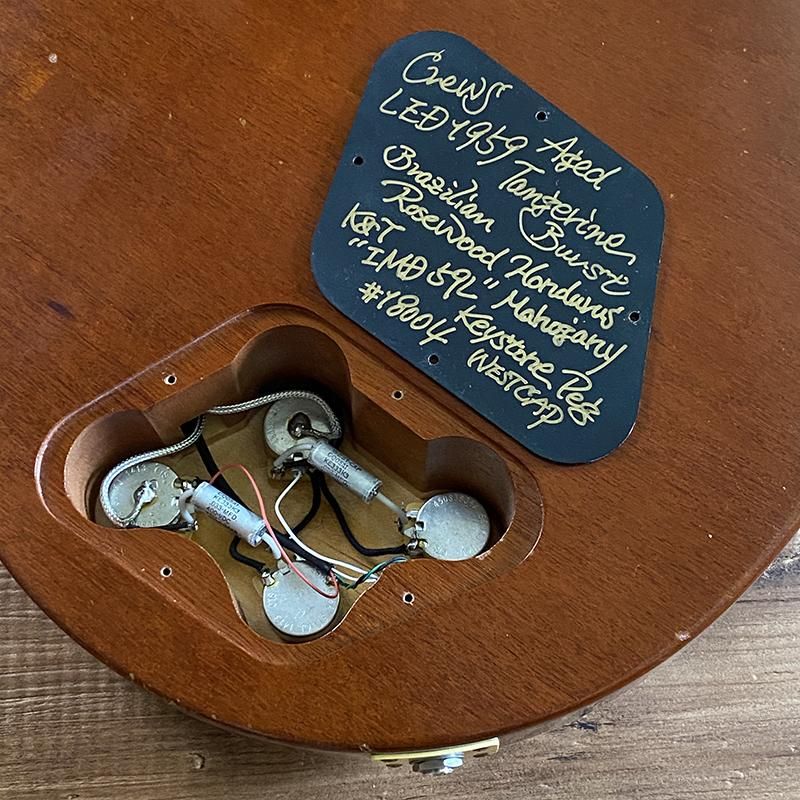 Crews
LED 1959 Aged
Tangerine
Brazilian Burst
Rosewood Honduras
K&T Mahogany
"IMD 59L"
#18004 Keystone Peg
WESTCAP